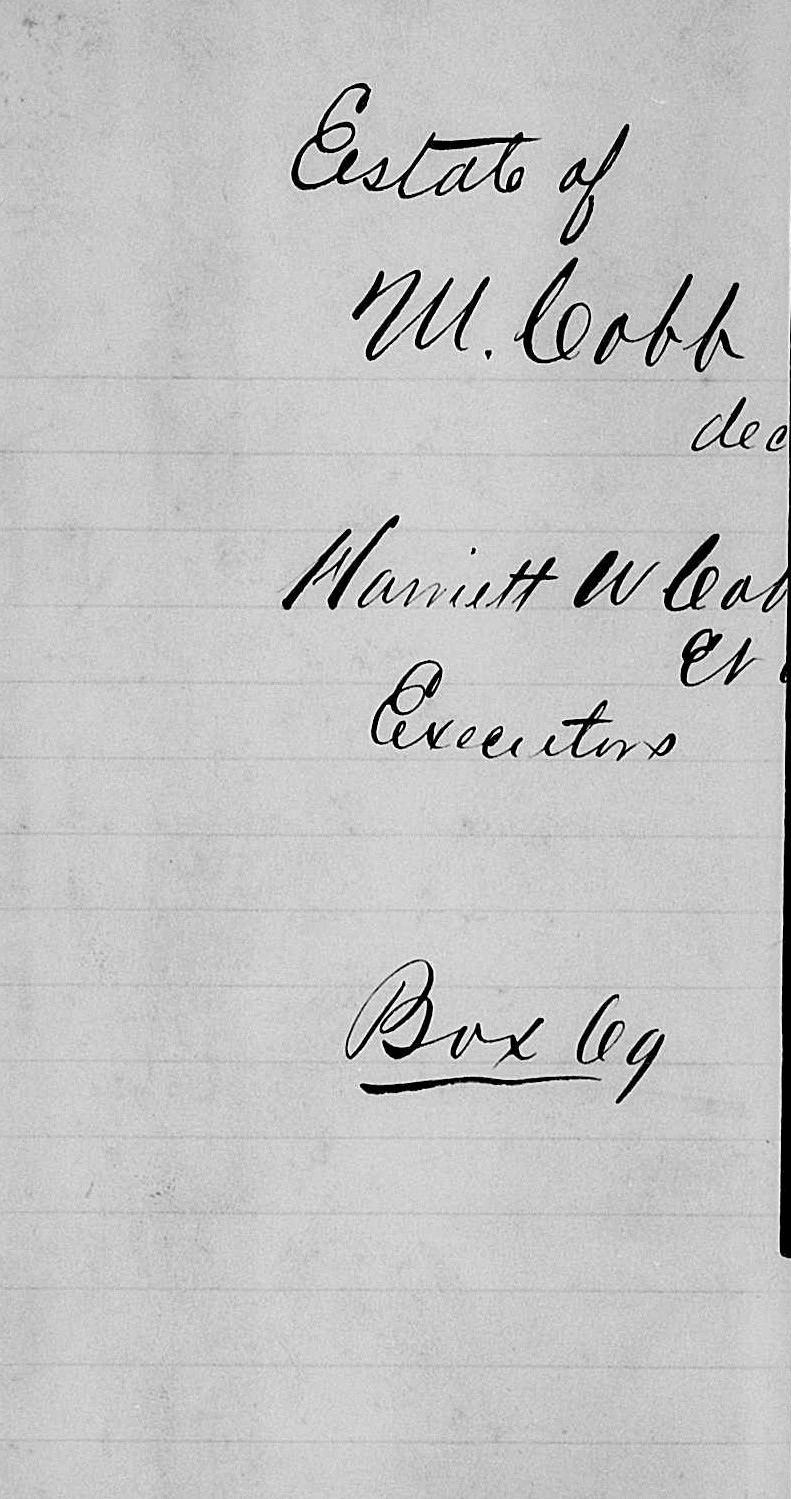 Estate of
M. Cobb
dec
Harriett W Cob
Et
Executors
Box 69